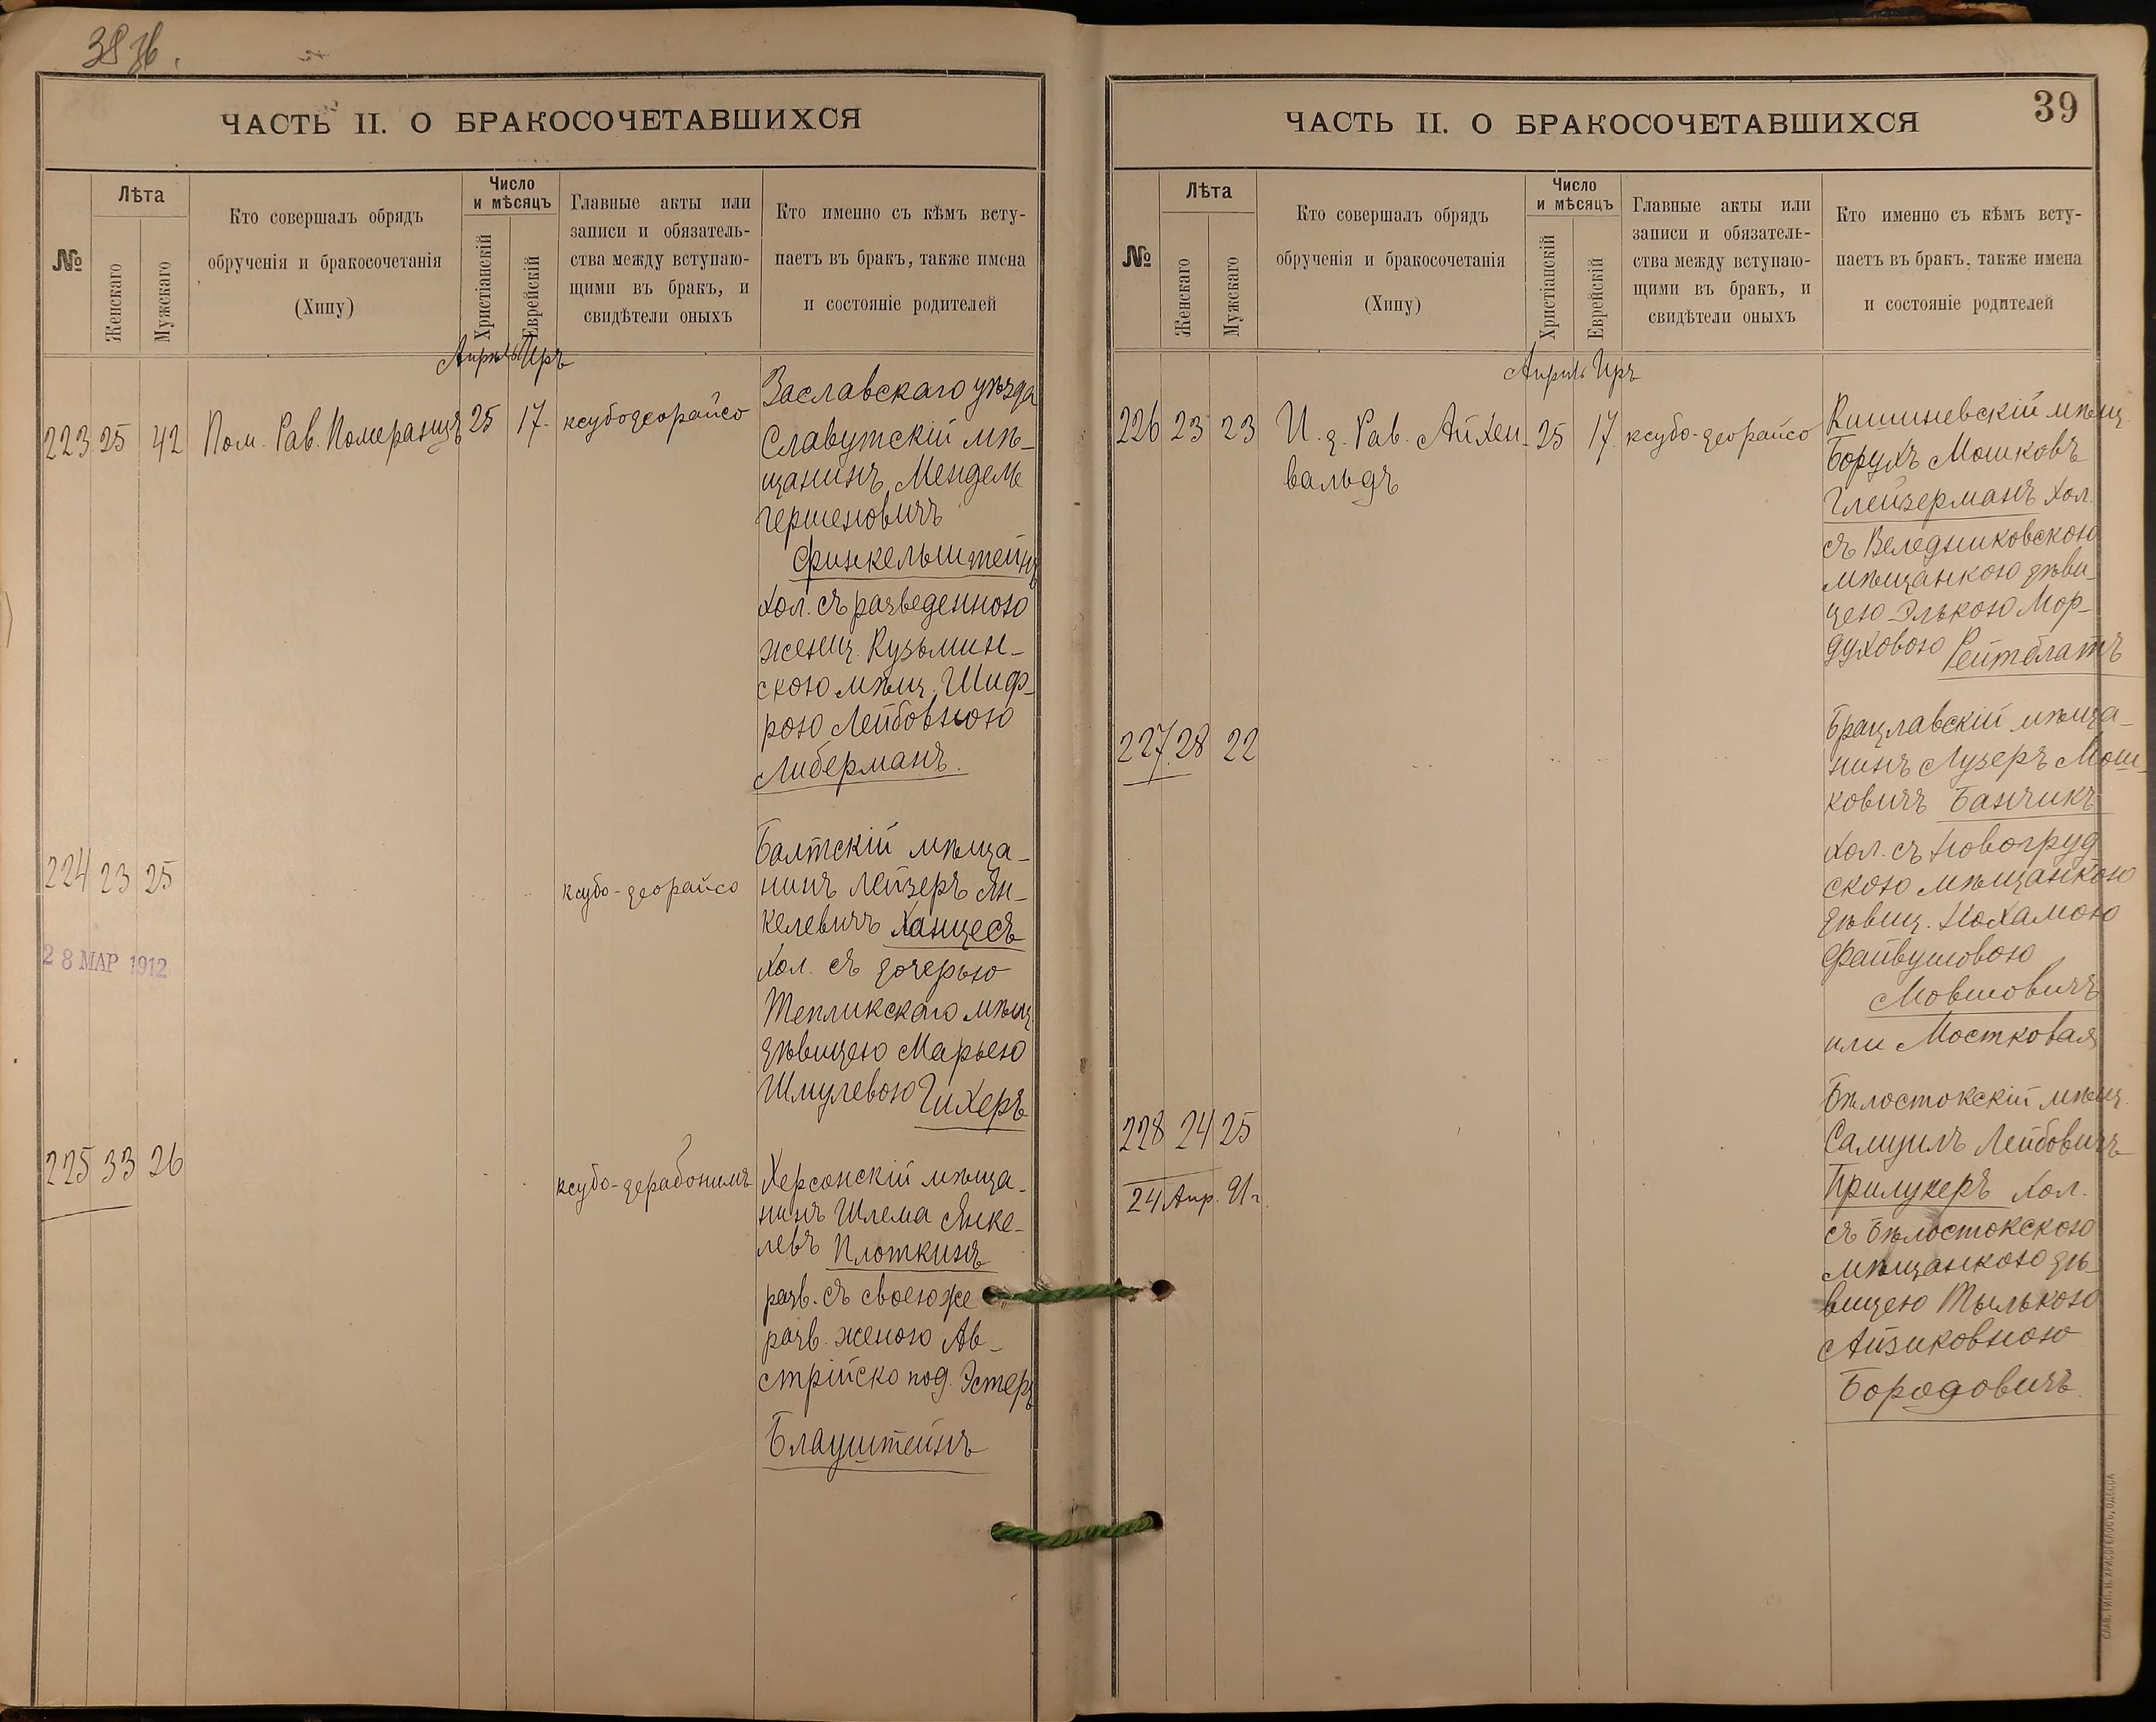 38 об.
ЧАСТЬ II. О БРАКОСОЧЕТАВШИХСЯ
№
Лѣта
Женскаго
Мужскаго
Кто совершалъ обрядъ
обрученія и бракосочетанія
(Хипу)
Число
и мѣсяцъ
Христіанскій
Еврейскій
Главные акты или
записи и обязатель-
ства между вступаю-
щими въ бракъ, и
свидѣтели оныхъ
Кто именно съ кѣмъ всту-
паетъ въ бракъ, также имена
и состояніе родителей
Апрѣль Иръ
223 25 42 Пом. Рав. Померанцъ 25 17. ксубо деорайсо
Заславскаго уѣзда
Славутскій мѣ-
щанинъ Мендель
Гершеновичъ
Финкельштейнъ
хол. съ разведенною
женщ. Кузьмин-
скою мѣщ. Шиф-
рою Лейбовною
Либерманъ.
224 23 25 ксубо-деорайсо
Балтскій мѣща-
нинъ Лейзеръ Ян-
келевичъ Ханцесъ
хол. съ дочерью
Тепликскаго мѣщ.
дѣвицею Марьею
Шмулевою Гихеръ
28 МАР 1912
225 33 26 ксубо-дерабонимъ
Херсонскій мѣща-
нинъ Шлема Янке-
левъ Плоткинъ
разв. съ своею же
разв. женою Ав-
стрійско под. Эстеръ
Блауштейнъ
39
ЧАСТЬ II. О БРАКОСОЧЕТАВШИХСЯ
№
Лѣта
Женскаго
Мужскаго
Кто совершалъ обрядъ
обрученія и бракосочетанія
(Хипу)
Число
и мѣсяцъ
Христіанскій
Еврейскій
Главные акты или
записи и обязатель-
ства между вступаю-
щими въ бракъ, и
свидѣтели оныхъ
Кто именно съ кѣмъ всту-
паетъ въ бракъ, также имена
и состояніе родителей
Апрѣль Иръ
226 23 23 И. д. Рав. Айхен- 25 17 ксубо-деорайсо
вальдъ
Кишиневскій мѣщ.
Борухъ Мошковъ
Глейзерманъ хол.
съ Веледниковскою
мѣщанкою дѣви-
цею Элькою Мор-
духовою Рейтблатъ
227 28 22
Брацлавскій мѣща-
нинъ Лузеръ Мош-
ковичъ Банчикъ
хол. съ Новогруд
скою мѣщанкою
дѣвиц. Нохамою
Файвушовою
Мовшовичъ
или Мостковая
228 24 25
Бѣлостокскій мѣщ.
Самуилъ Лейбовичъ
Прилукеръ хол.
съ Бѣлостокскою
мѣщанкою дѣ-
вицею Тылькою
Айзиковною
Бородовичъ.
24 Апр. 91 г.
СЛАВ. ТИП. Н. ХРИСОГЕЛОСЪ, ОДЕССА